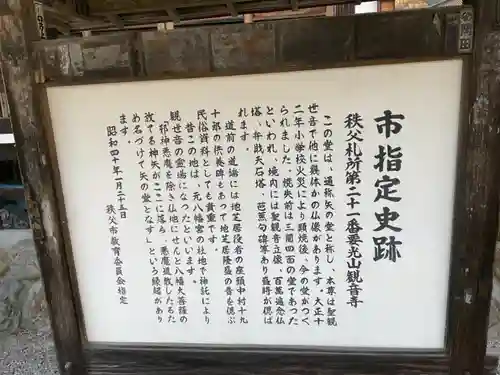 市指定史跡
秩父札所第二十一番要光山観音寺
この堂は、通称矢の堂と称し、本尊は聖観
世音で他に幾体かの仏像があります。大正十
二年小学校火災により類焼後、今の堂がつく
られました。焼失前は三間四面の堂であった
といわれ、境内には聖観音立像、百万遍念仏
塔、弁財天石塔、芭蕉句碑等あり盛時が偲ば
れます。
道前の道場には地芝居役者の座頭中村十九
十郎の供養碑もあって地芝居隆盛の昔を偲ぶ
民俗資料としても貴重です。
昔この地は、元八幡宮の社地で神託により
観世音の霊場になったといいます。
「邪神悪魔を除き仏地にせんと八幡大菩薩の
放てる神矢がここに落ち、悪魔退散したるた
め名づけて矢の堂となす」という縁起があり
ます。
昭和四十年一月二十五日
秩父市教育委員会指定